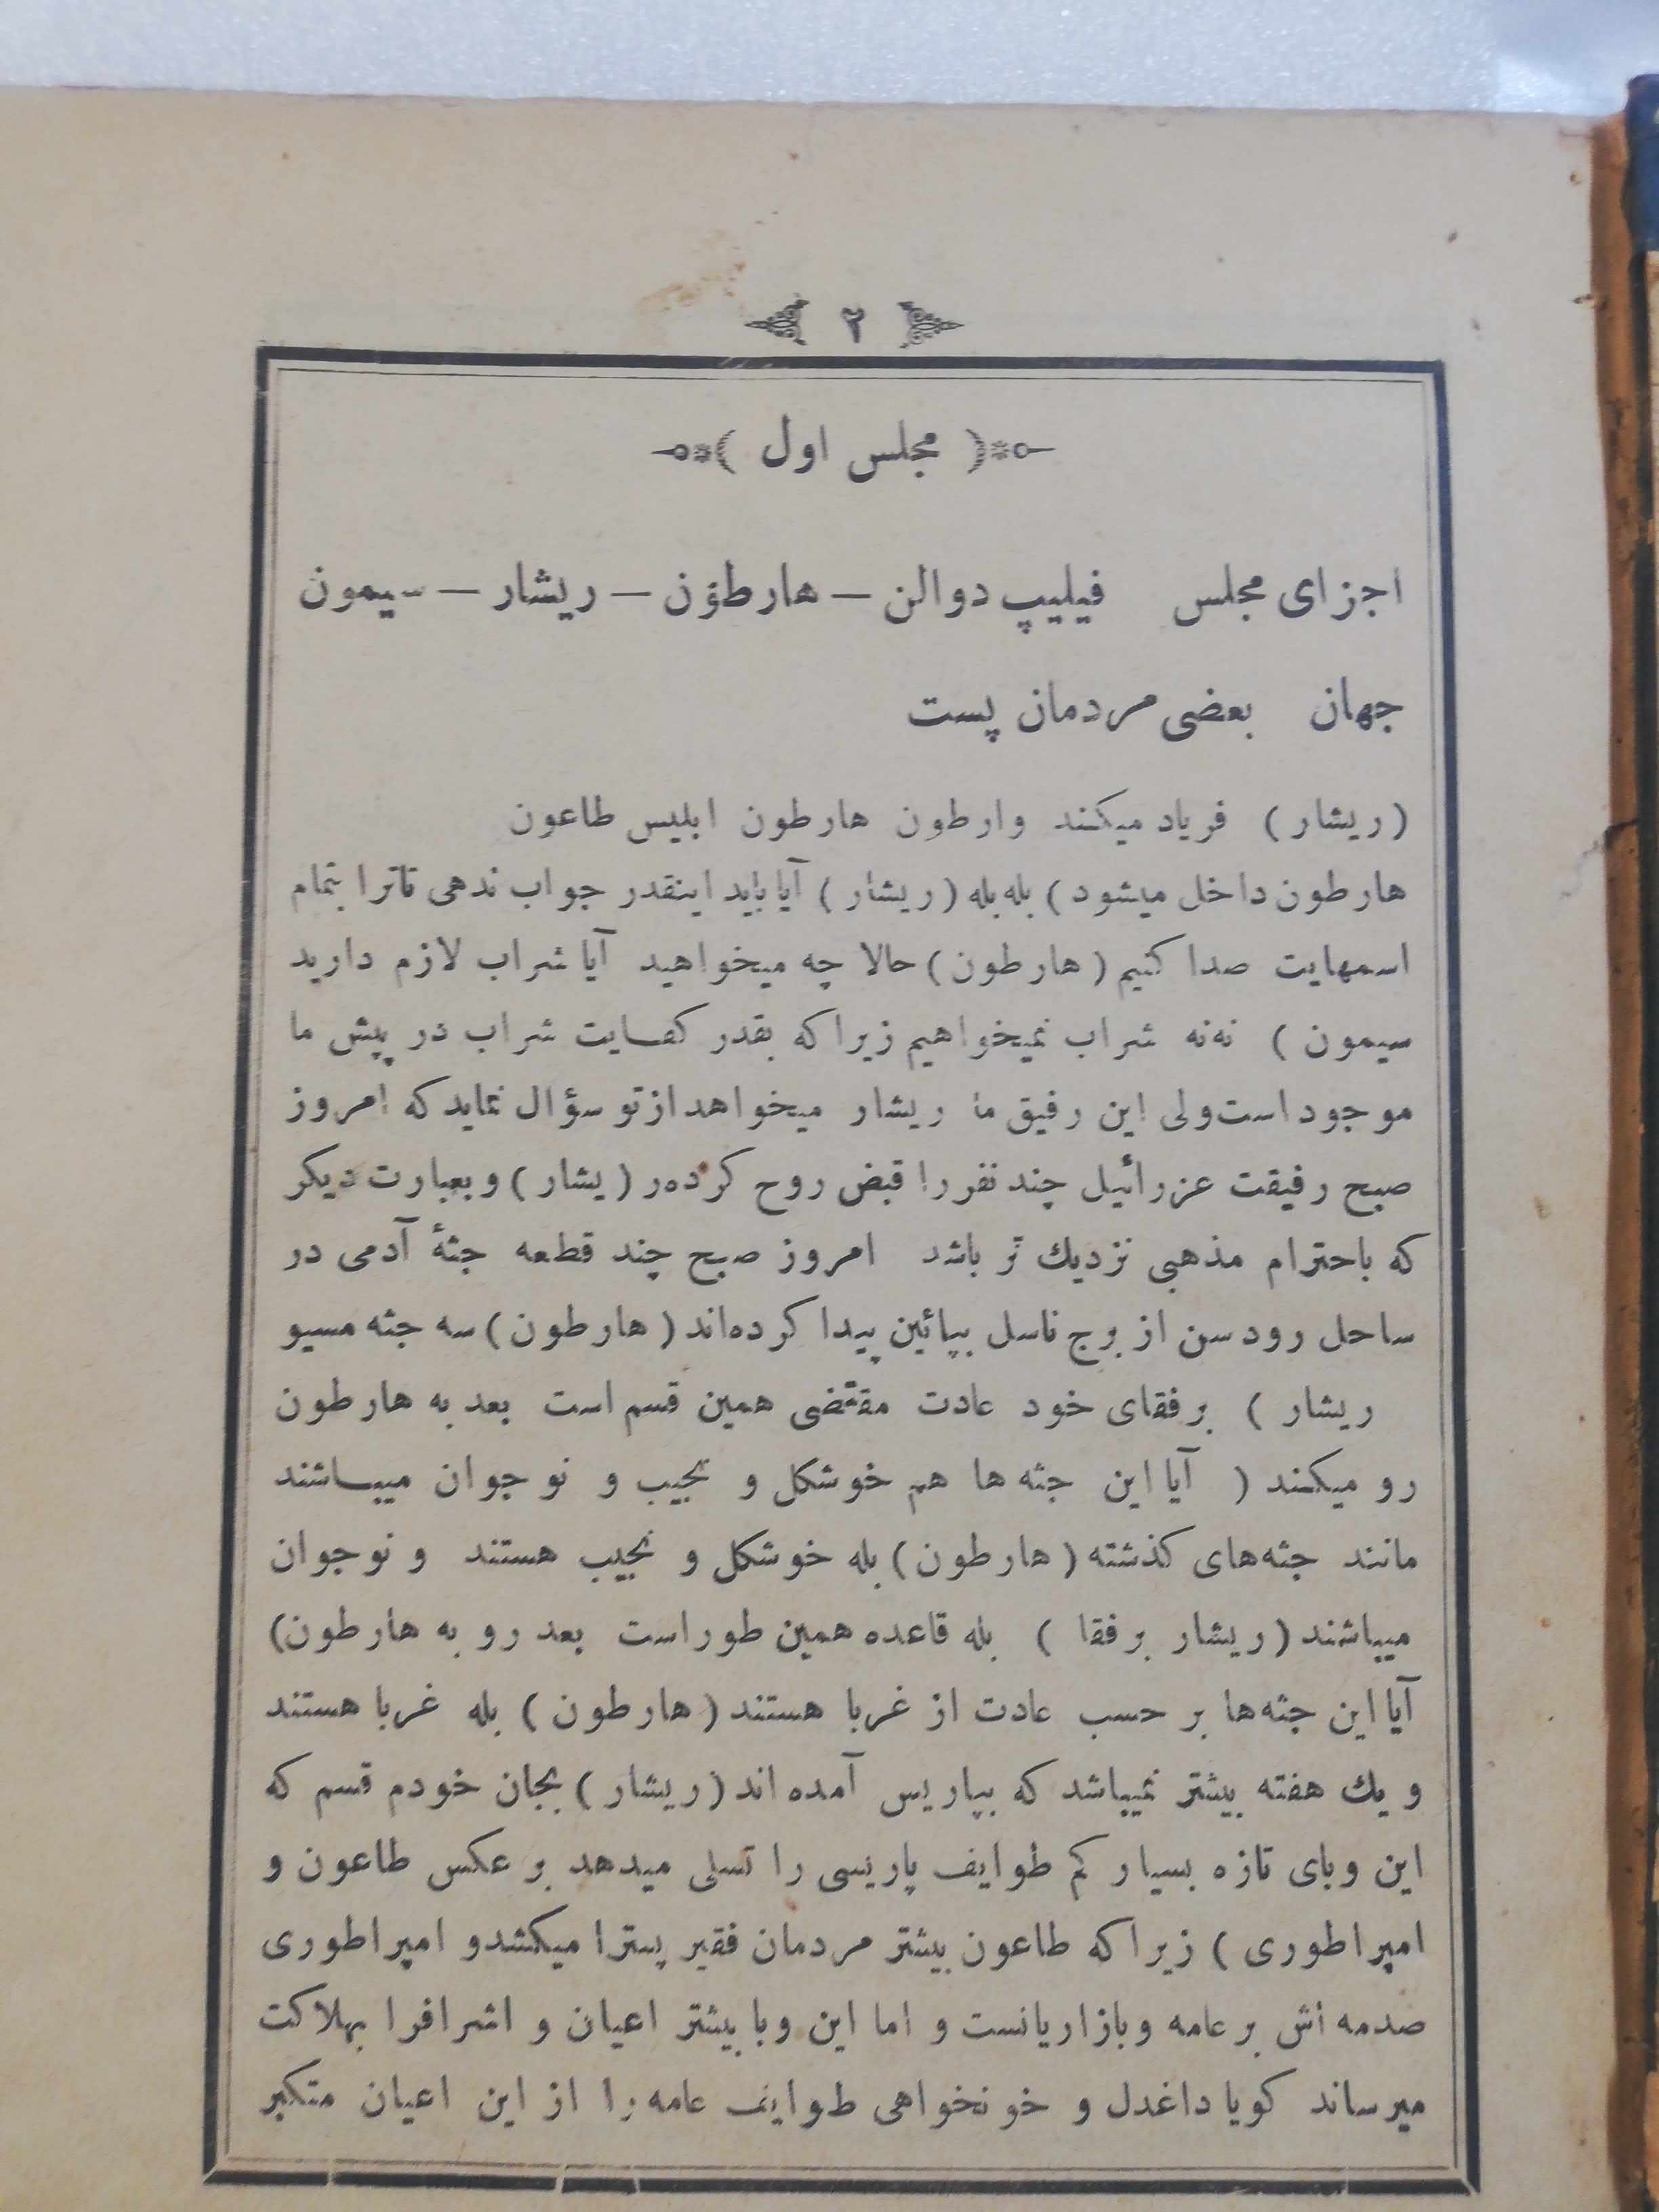 ۲
مجلس اول
اجزای مجلس فیلیپ دوالن — هارطؤن — ریشار — سیمون
جهان بعضی مردمان پست
(ریشار) فریاد میکند وارطون هارطون ابلیس طاعون
هارطون داخل میشود) بله بله (ریشار) آیا باید اینقدر جواب ندهی تا ترا بتمام
اسمهایت صدا کنیم (هارطون) حالا چه میخواهید آیا شراب لازم دارید
سیمون) نه نه شراب نمیخواهیم زیرا که بقدر کفایت شراب در پیش ما
موجود است ولی این رفیق ما ریشار میخواهد از تو سؤال نماید که امروز
صبح رفیقت عزرائیل چند نفر را قبض روح کرده ر (یشار) و بعبارت دیکر
که باحترام مذهبی نزدیك تر باشد امروز صبح چند قطعه جثهٔ آدمی در
ساحل رود سن از برج ناسل بپائین پیدا کرده‌اند (هارطون) سه جثه مسیو
ریشار) برفقای خود عادت مقتضی همین قسم است بعد به هارطون
رو میکند ( آیا این جثه ها هم خوشکل و نجیب و نو جوان میباشند
مانند جثه‌های کذشته (هارطون) بله خوشکل و نجیب هستند و نو جوان
میباشند (ریشار برفقا) بله قاعده همین طور است بعد رو به هارطون)
آیا این جثه‌ها بر حسب عادت از غربا هستند (هارطون) بله غربا هستند
و یك هفته بیشتر نمیباشد که بپاریس آمده اند (ریشار) بجان خودم قسم که
این وبای تازه بسیار کم طوایف پاریسی را تسلی میدهد بر عکس طاعون و
امپراطوری) زیرا که طاعون بیشتر مردمان فقیر پسترا میکشدو امپراطوری
صدمه اش بر عامه و بازاریانست و اما این وبا بیشتر اعیان و اشرافرا بهلاکت
میرساند کویا داغدل و خونخواهی طوایف عامه را از این اعیان متکبر